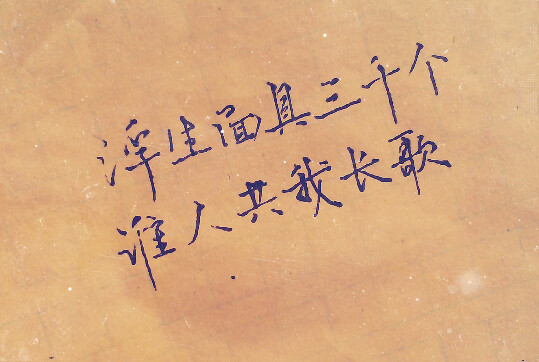 浮生面具三千个
谁人共我长歌